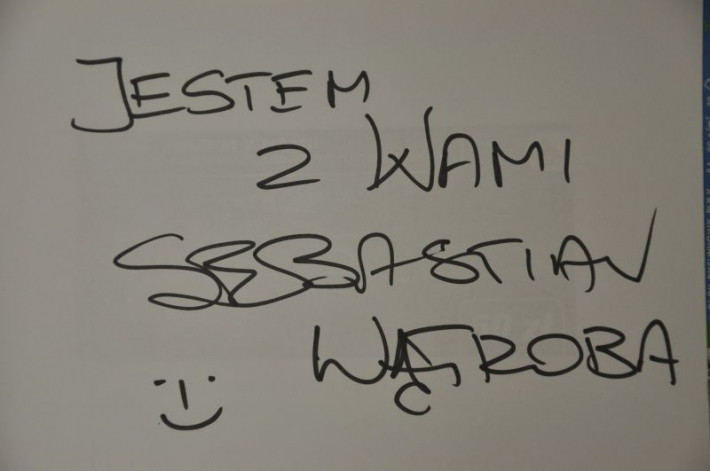 JESTEM
Z WAMI
SEBASTIAN
WĄTROBA